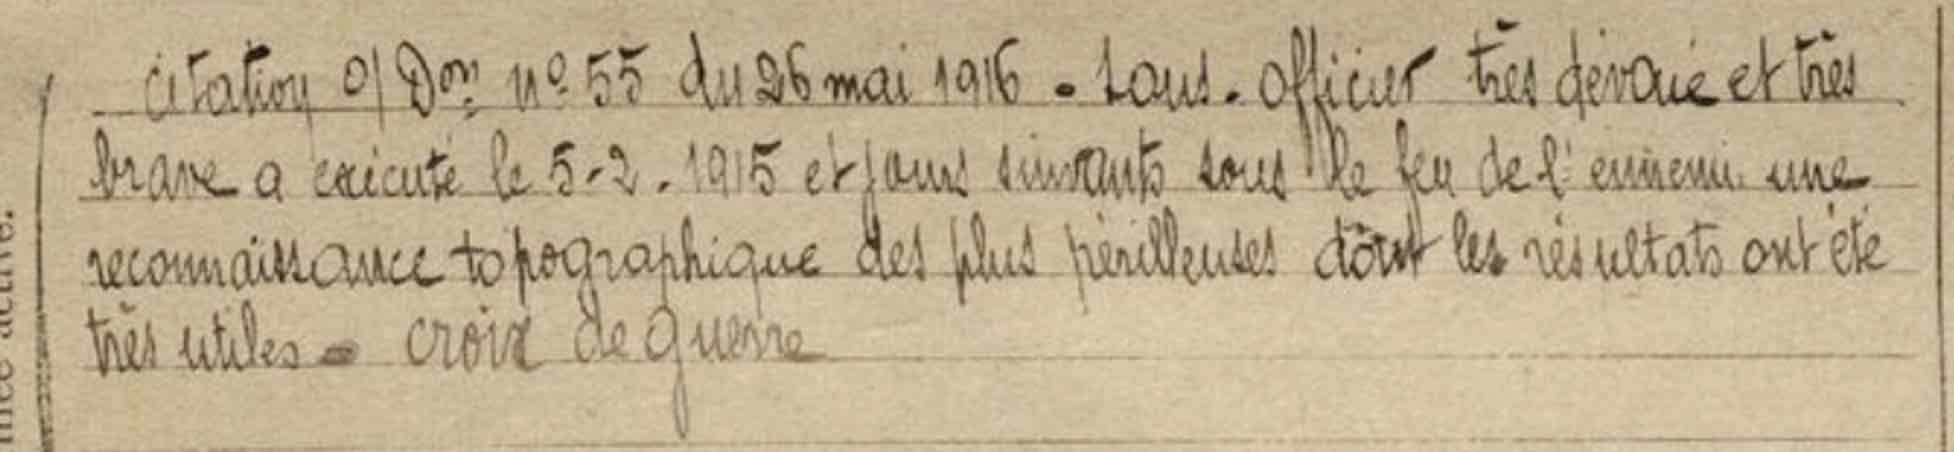 Citation O/ Don n° 55 du 26 mai 1916 - Sous-officier très dévoué et très
brave a exécuté le 5-2-1915 et jours suivants sous le feu de l'ennemi une
reconnaissance topographique des plus périlleuses dont les résultats ont été
très utiles - croix de guerre